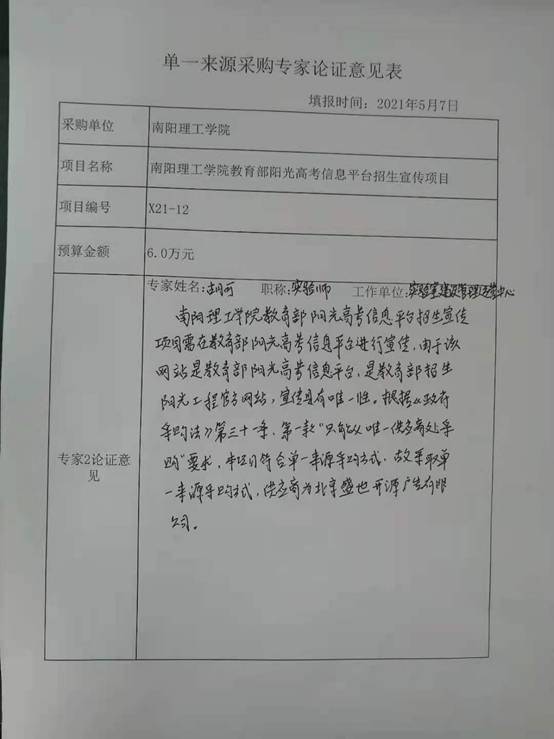 单一来源采购专家论证意见表
填报时间：2021年5月7日
采购单位 南阳理工学院
项目名称 南阳理工学院教育部阳光高考信息平台招生宣传项目
项目编号 X21-12
预算金额 6.0万元
专家2论证意见
专家姓名: 职称: 实验师 工作单位: 实验室建设管理中心
南阳理工学院教育部阳光高考信息平台招生宣传
项目需在教育部阳光高考信息平台进行宣传，由于该
网站是教育部阳光高考信息平台，是教育部招生
阳光工程官方网站，宣传具有唯一性。根据《政府
采购法》第三十一条，第一款“只能从唯一供应商处采
购”要求，本项目符合单一来源采购方式，故采取单
一来源采购方式，供应商为北京盛世开源广告有限
公司。